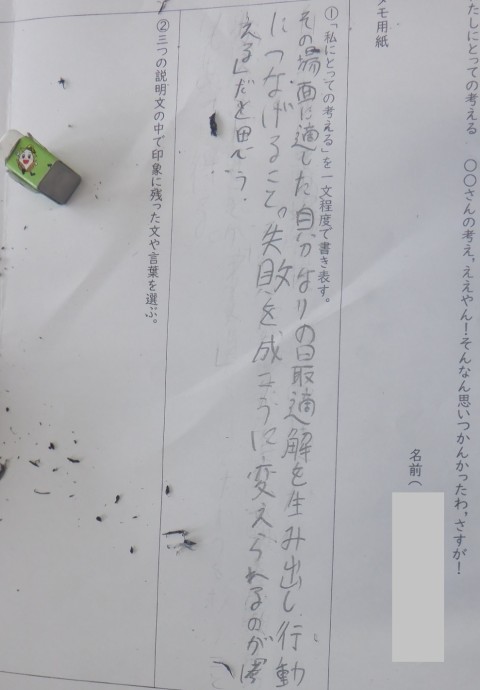 たしにとっての考える　〇〇さんの考え，ええやん！そんなん思いつかんかったわ，さすが！
メモ用紙
名前（
①「私にとっての考える」を一文程度で書き表す。
その場面に適した自分なりの最適解を生み出し行動
につなげること。失敗を成こうに変えられるのが「考
える」だと思う。
②三つの説明文の中で印象に残った文や言葉を選ぶ。